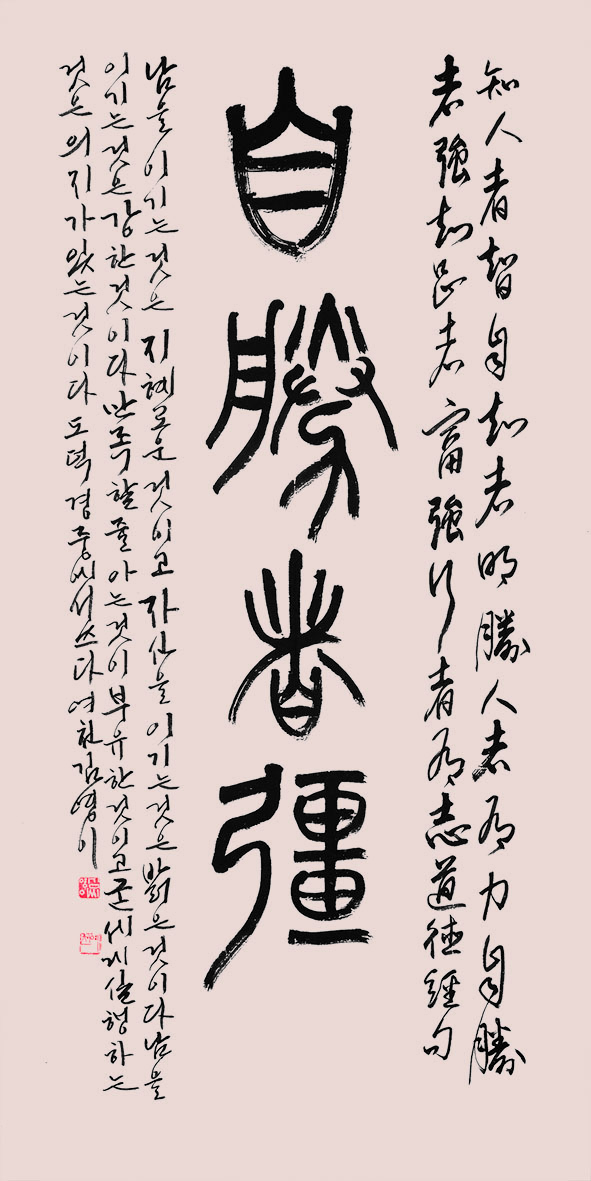 知人者智自知者明勝人者有力自勝
者強知足者富強行者有志道德經句
自勝者彊
남을이기는것은 지혜로운것이고 자신을 이기는것은 밝은것이다 남을
이기는것은 강한것이다 만족할줄아는것이 부유한것이고 굳세게실행하는
것은 의지가있는것이다 도덕경중에서쓰다 여천김영이